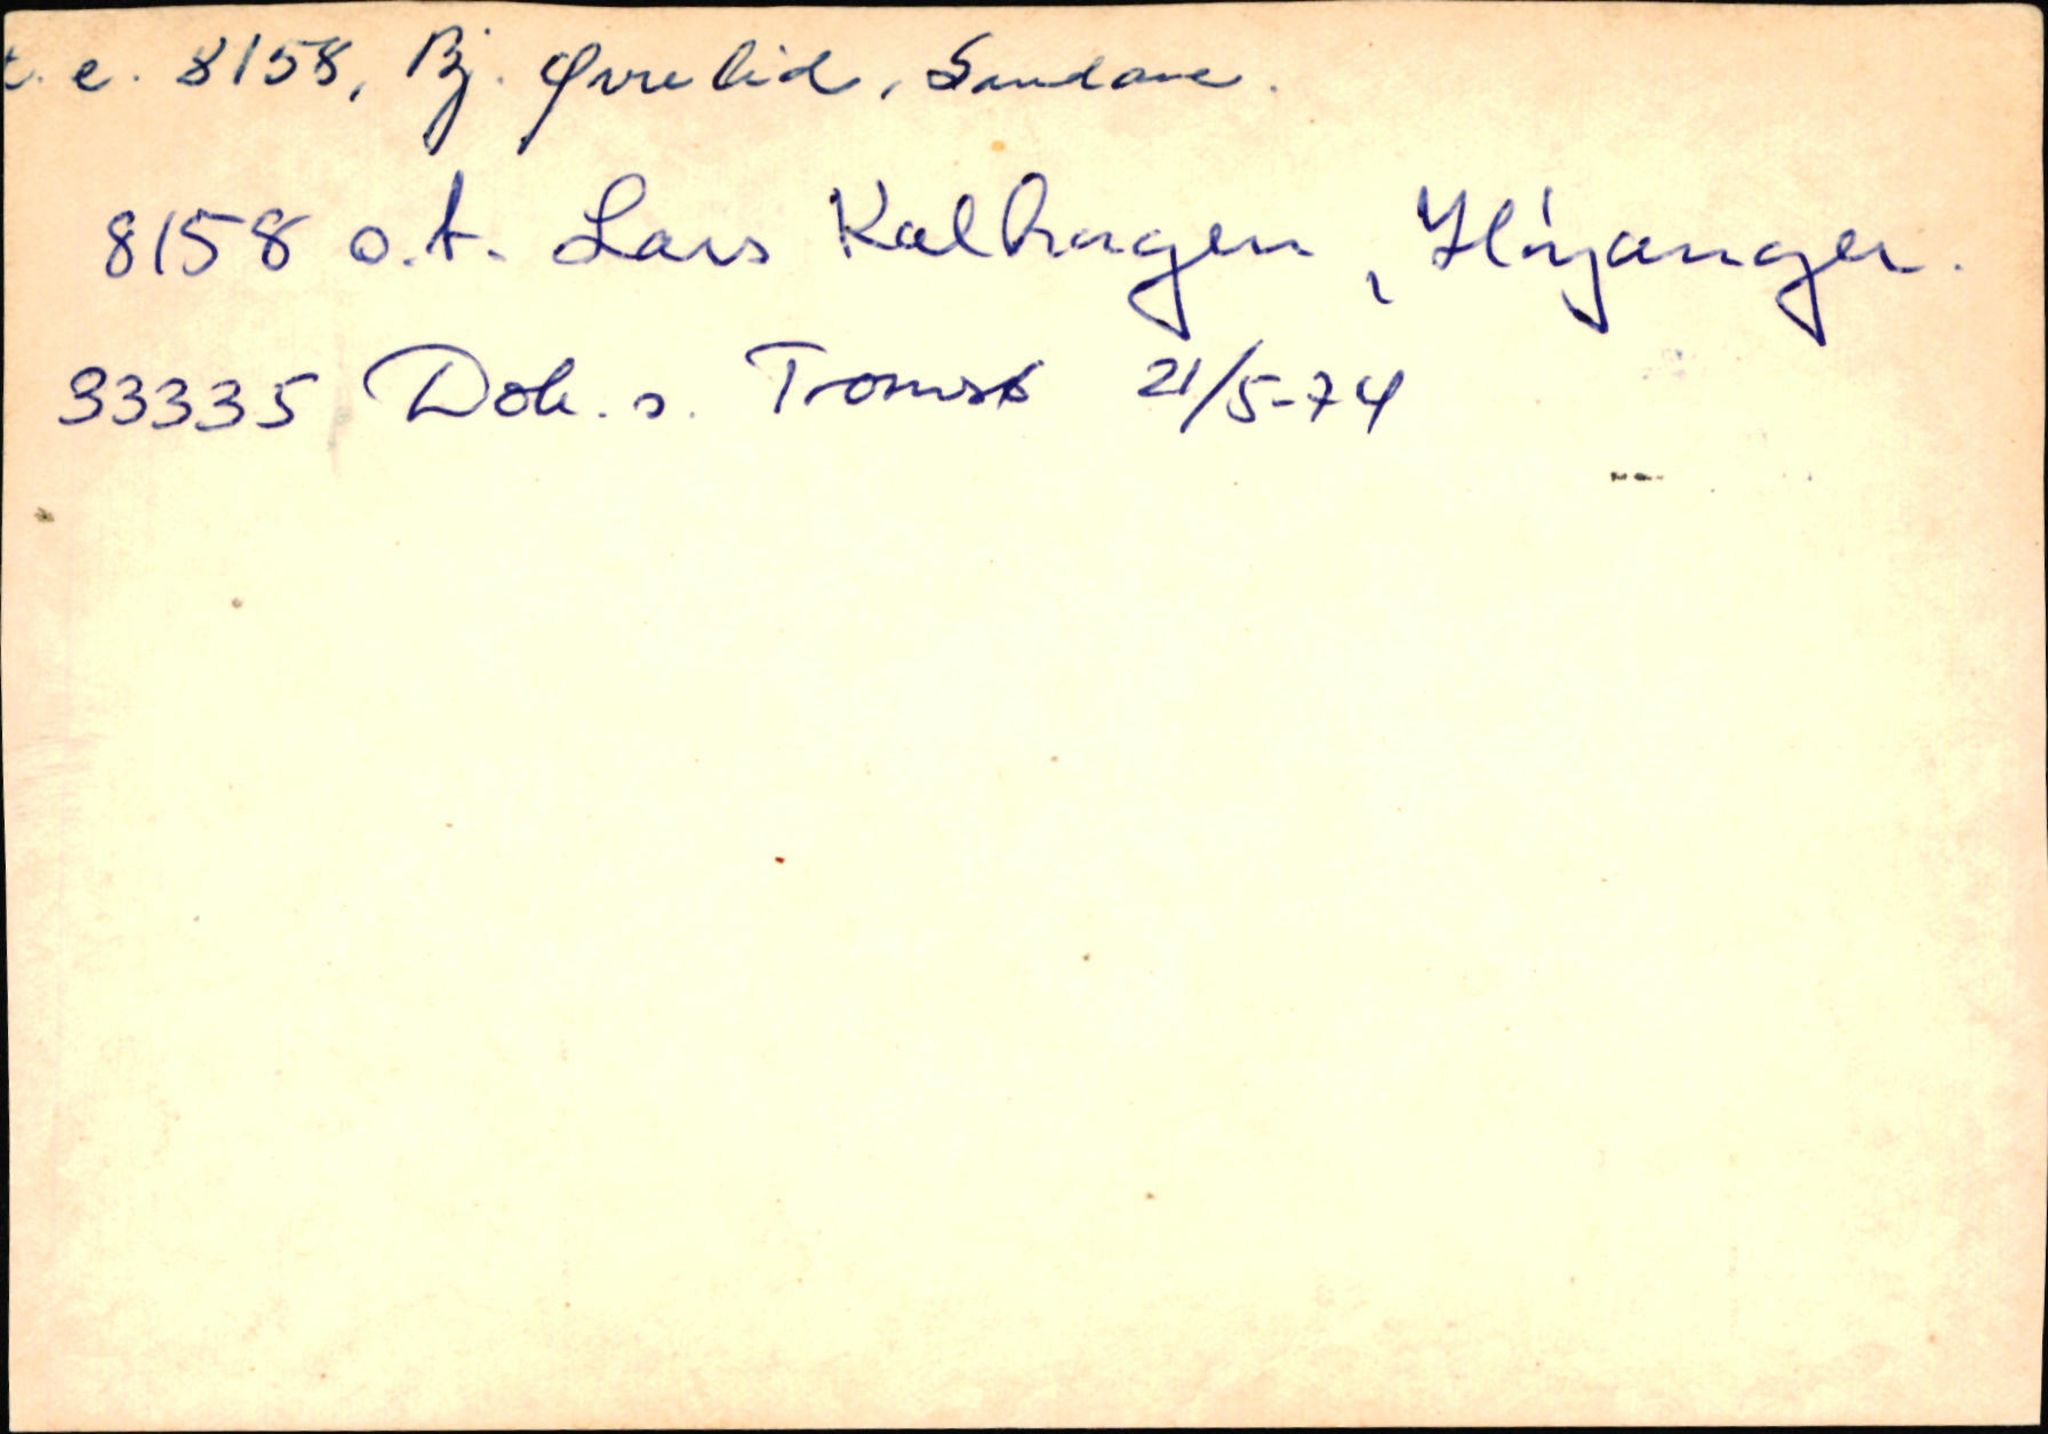 t. e. 8158, Bj. Øvrelid, Sandane.
8158 o.t. Lars Kalhagen, Höyanger.
33335 Dok. s. Tromsø 21/5-74